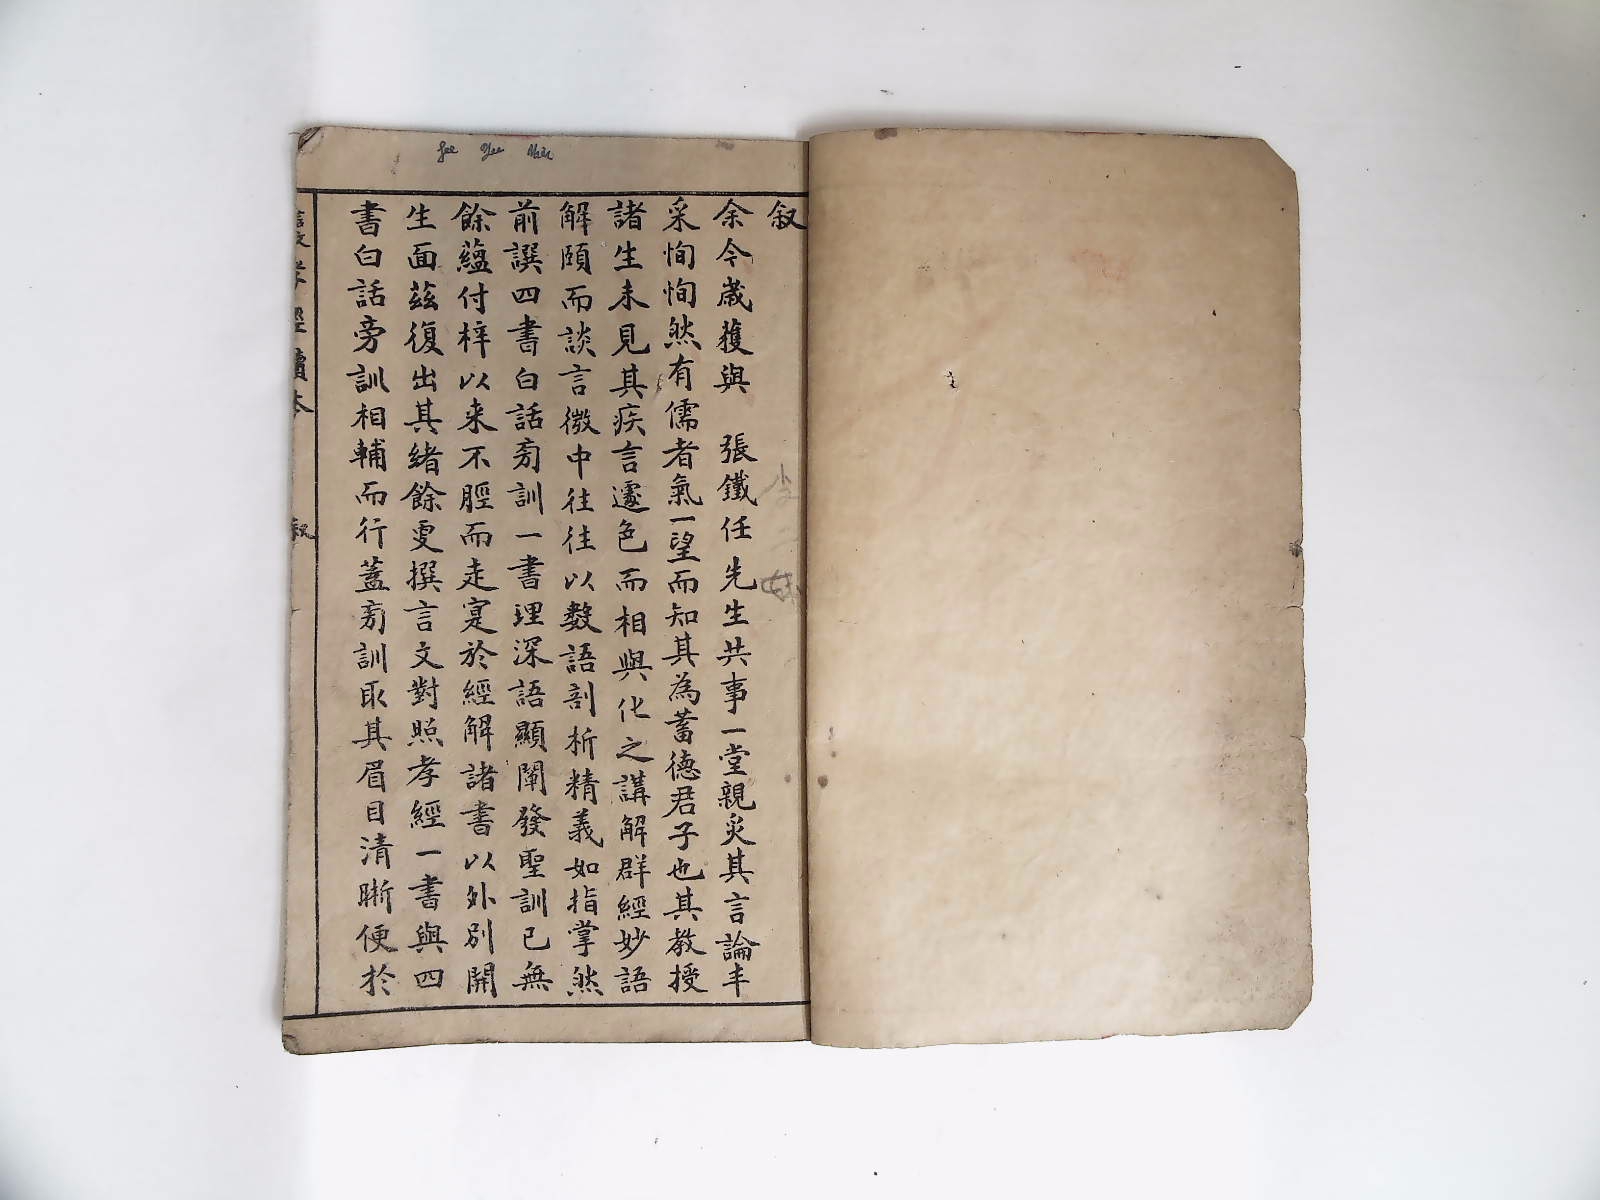 叙
余今歲獲與　張鐵任先生共事一堂親炙其言論丰
采恂恂然有儒者氣一望而知其為蓄德君子也其教授
諸生未見其疾言遽色而相與化之講解群經妙語
解頤而談言微中往往以數語剖析精義如指掌然
前譔四書白話旁訓一書理深語顯闡發聖訓已無
餘蘊付梓以来不脛而走寔於經解諸書以外别開
生面茲復出其緒餘更撰言文對照孝經一書與四
書白話旁訓相輔而行蓋旁訓取其眉目清晰便於
孝經讀本
叙